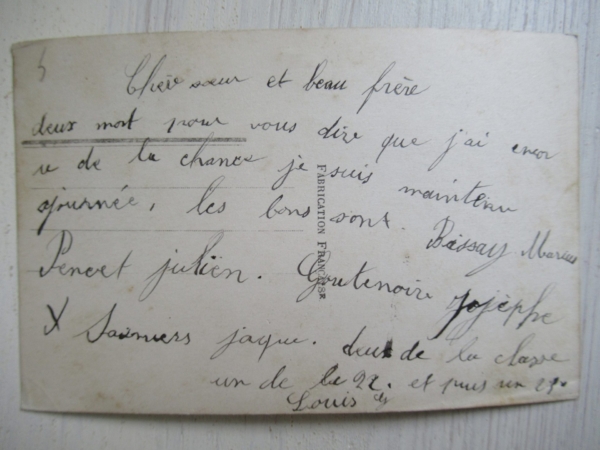 Chère sœur et beau frère
deux mot pour vous dire que j'ai encor
u de la chance je suis maintenu
ajournée, les bons sont. Bissay Marius
Pencet julien. Goutenoire Jojèphe
X Saumiers jaque. deux de la classe
un de la 22. et puis un 29.
Louis
FABRICATION FRANÇAISE